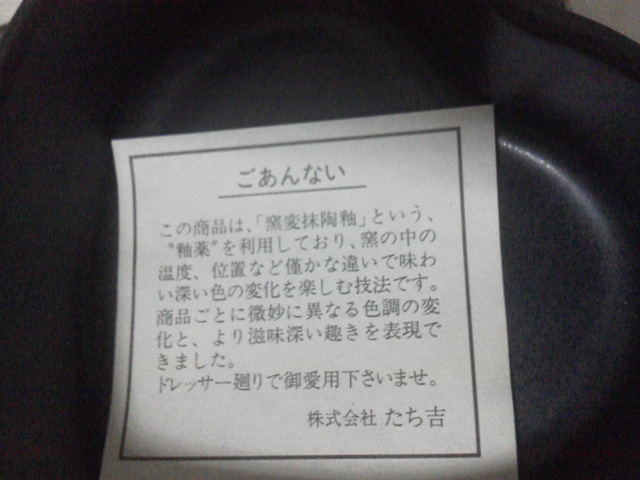 ごあんない
この商品は、「窯変抹陶釉」という、
〝釉薬〟を利用しており、窯の中の
温度、位置など僅かな違いで味わ
い深い色の変化を楽しむ技法です。
商品ごとに微妙に異なる色調の変
化と、より滋味深い趣きを表現で
きました。
ドレッサー廻りで御愛用下さいませ。
株式会社 たち吉